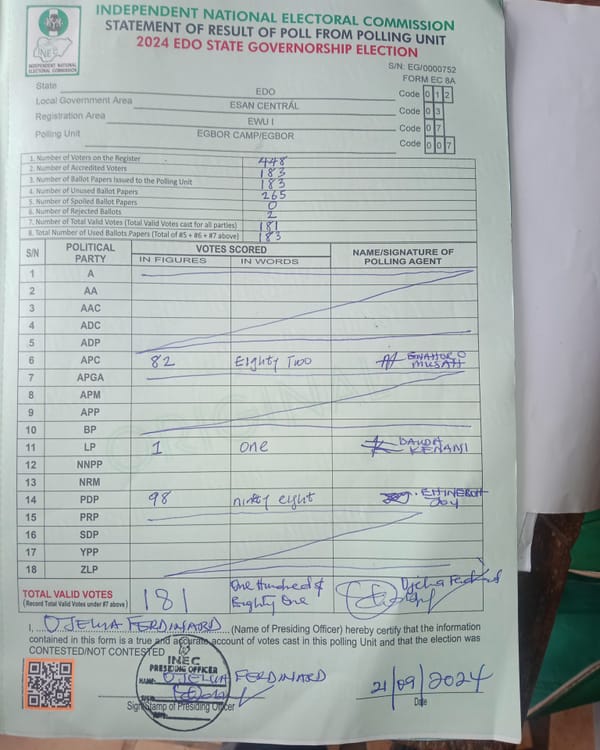 INDEPENDENT NATIONAL ELECTORAL COMMISSION
STATEMENT OF RESULT OF POLL FROM POLLING UNIT
2024 EDO STATE GOVERNORSHIP ELECTION
INEC
INDEPENDENT NATIONAL
ELECTORAL COMMISSION
S/N: EG/0000752
FORM EC 8A
State EDO Code 0 1 2
Local Government Area ESAN CENTRAL Code 0 3
Registration Area EWU I Code 0 7
Polling Unit EGBOR CAMP/EGBOR Code 0 0 7
1. Number of Voters on the Register 448
2. Number of Accredited Voters 183
3. Number of Ballot Papers Issued to the Polling Unit 183
4. Number of Unused Ballot Papers 265
5. Number of Spoiled Ballot Papers 0
6. Number of Rejected Ballots 2
7. Number of Total Valid Votes (Total Valid Votes cast for all parties) 181
8. Total Number of Used Ballots Papers (Total of #5 + #6 + #7 above) 183
S/N POLITICAL PARTY VOTES SCORED NAME/SIGNATURE OF POLLING AGENT
IN FIGURES IN WORDS
1 A
2 AA
3 AAC
4 ADC
5 ADP
6 APC 82 Eighty Two
7 APGA
8 APM
9 APP
10 BP
11 LP 1 one
12 NNPP
13 NRM
14 PDP 98 ninty eight
15 PRP
16 SDP
17 YPP
18 ZLP
ORIGINAL
TOTAL VALID VOTES 181 One Hundred & Eighty One
(Record Total Valid Votes under #7 above)
I, OJELUA FERDINARD (Name of Presiding Officer) hereby certify that the information
contained in this form is a true and accurate account of votes cast in this polling Unit and that the election was
CONTESTED/NOT CONTESTED
INEC
PRESIDING OFFICER
NAME: OJELUA FERDINARD
Sign/Stamp of Presiding Officer
21/09/2024
Date